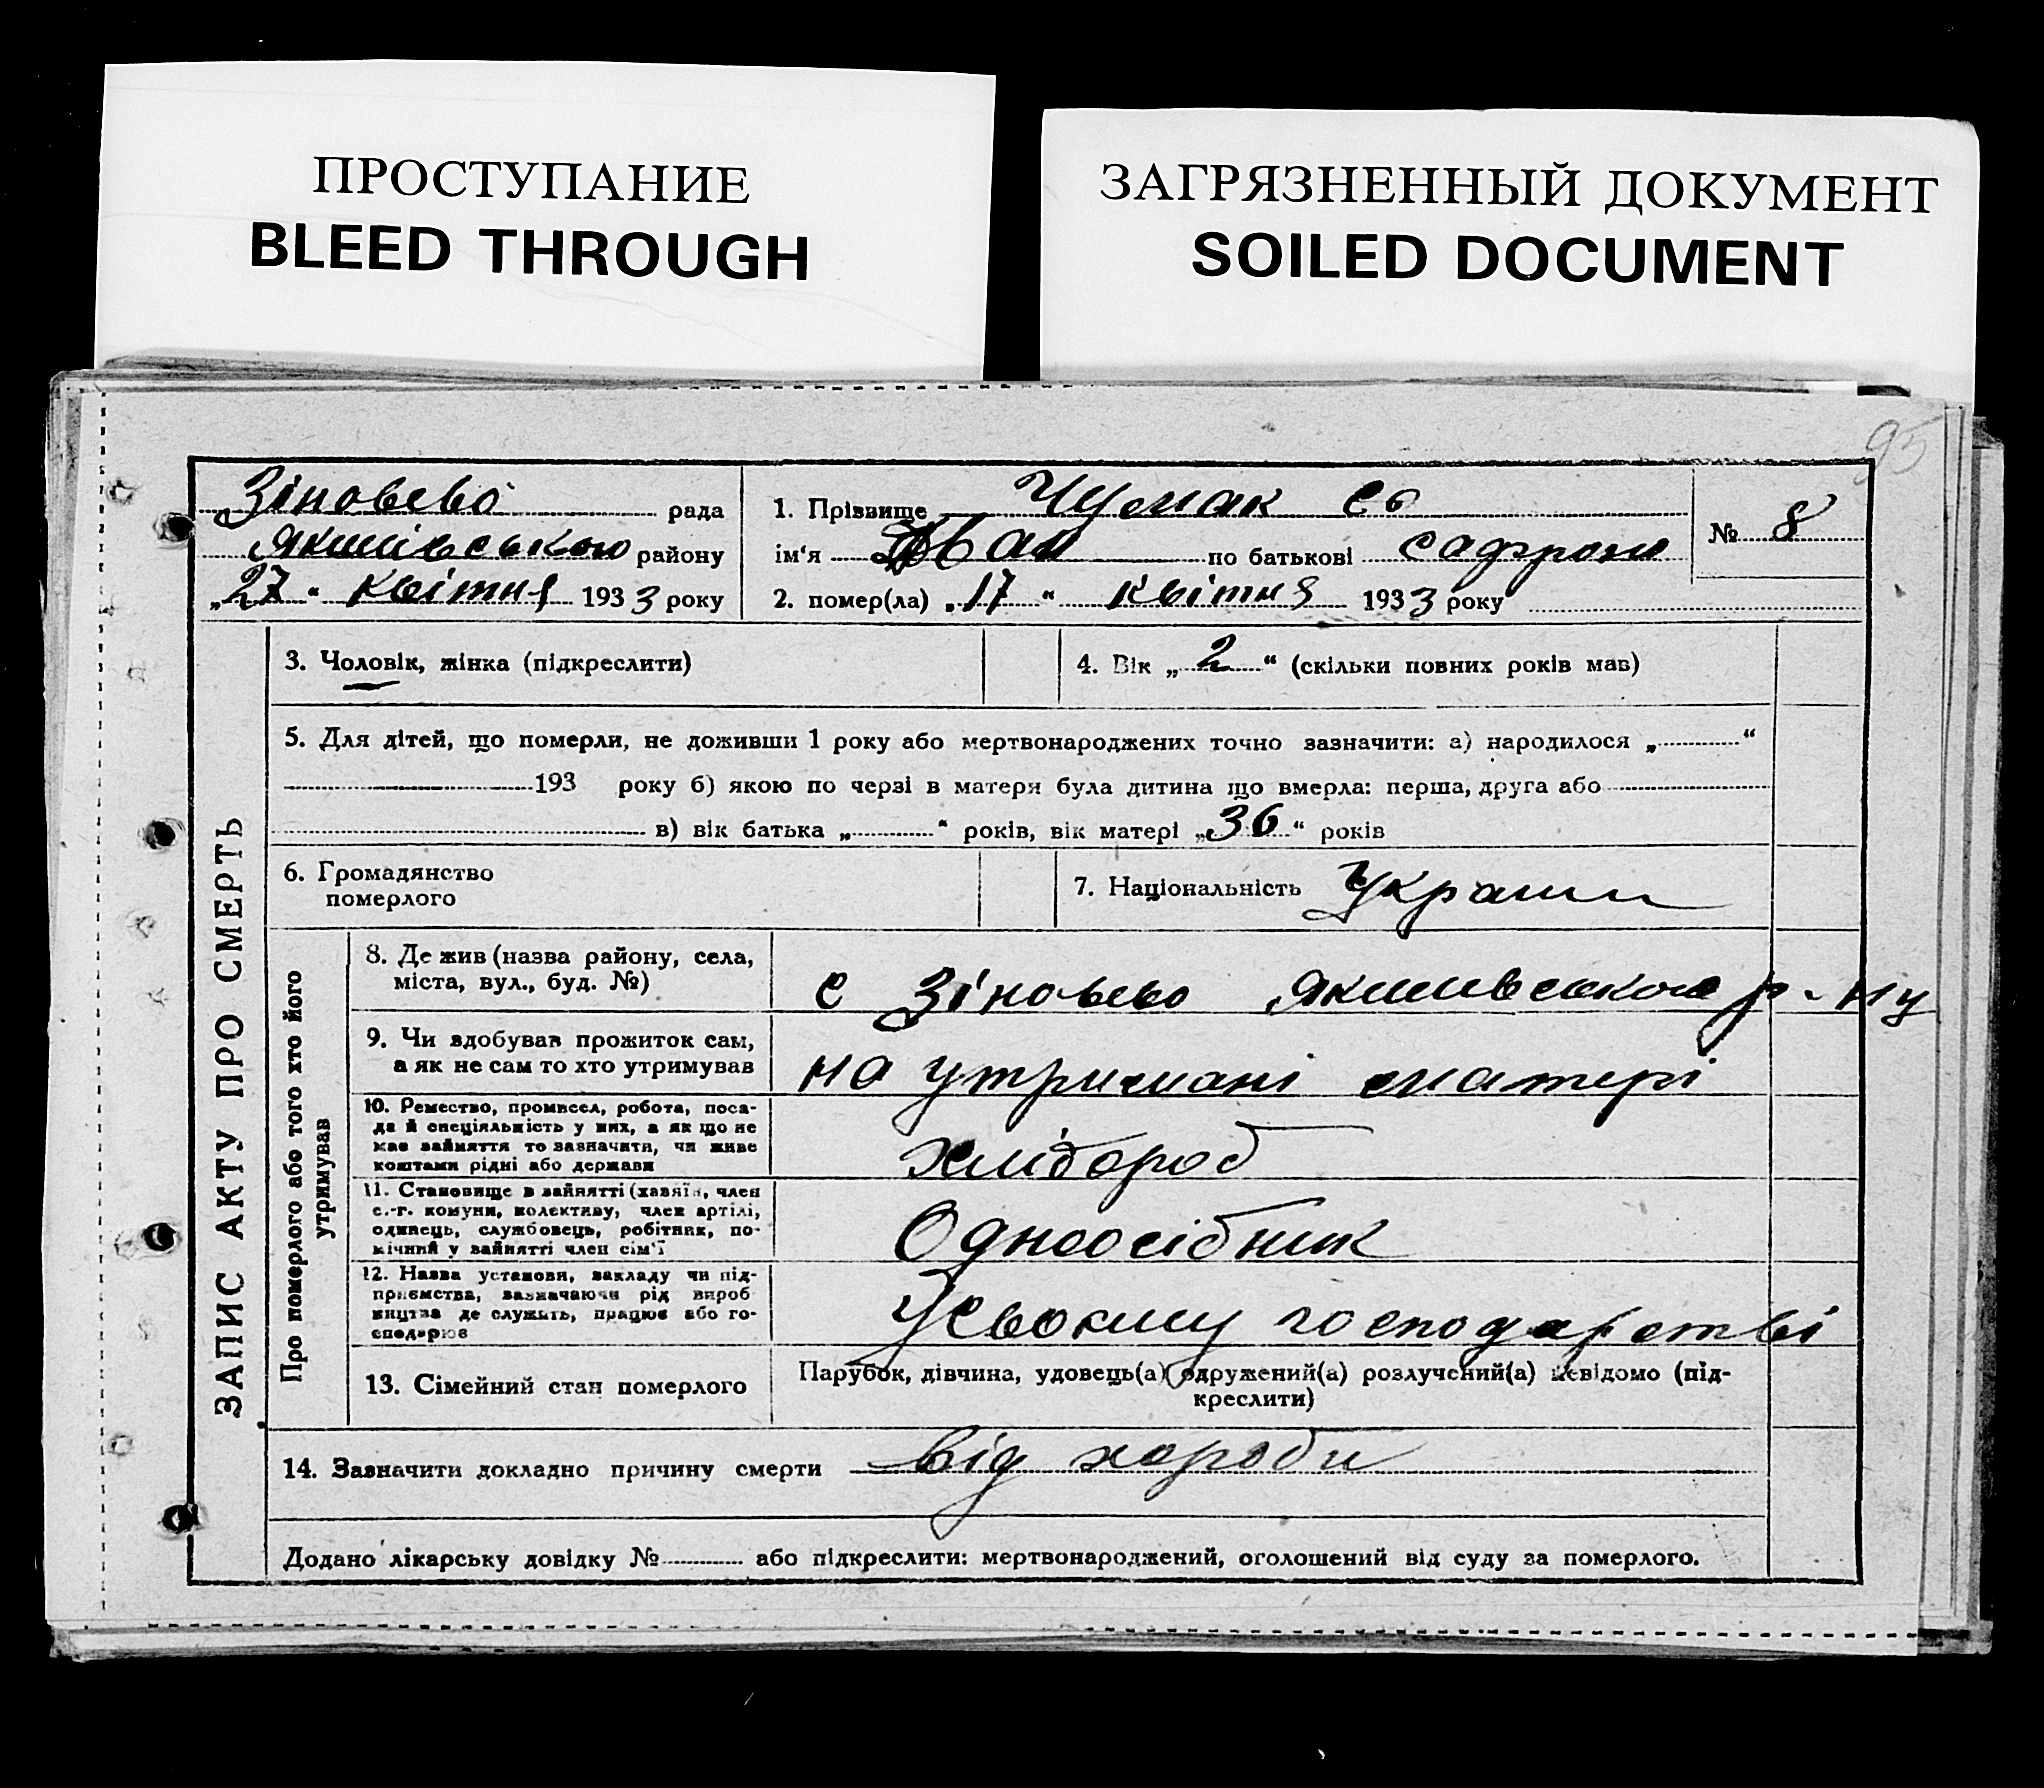 ПРОСТУПАНИЕ
BLEED THROUGH
ЗАГРЯЗНЕННЫЙ ДОКУМЕНТ
SOILED DOCUMENT
95
ЗАПИС АКТУ ПРО СМЕРТЬ
Зіновєво рада
Якимівського району
„27“ квітня 1933 року
1. Прізвище Чумак
ім‘я Іван по батькові Сафрони
2. помер(ла) „17“ квітня 1933 року
№ 8
3. Чоловік, жінка (підкреслити)
4. Вік „2“ (скільки повних років мав)
5. Для дітей, що померли, не доживши 1 року або мертвонароджених точно зазначити: а) народилося „ “
193 року б) якою по черзі в матеря була дитина що вмерла: перша, друга або
в) вік батька „ “ років, вік матері „36“ років
6. Громадянство
померлого
7. Національність Україн
Про померлого або того хто його
утримував
8. Де жив (назва району, села,
міста, вул., буд. №)
с Зіновєво Якимівського р-ну
9. Чи здобував прожиток сам,
а як не сам то хто утримував
на утримані матері
10. Ремество, промисел, робота, поса-
да й спеціяльність у них, а як що не
має зайняття то зазначити, чи живе
коштами рідні або держави
хлібороб
11. Становище в зайнятті (хазяїн, член
с.-г. комуни, колективу, член артілі,
одинець, службовець, робітник, по-
мічний у зайнятті член сім‘ї
Одноосібник
12. Назва установи, закладу чи під-
приємства, зазначаючи рід вироб
ництва де служить, працює або го-
сподарює
У своєму господарстві
13. Сімейний стан померлого
Парубок, дівчина, удовець(а) одружений(а) розлучений(а) невідомо (під-
креслити)
14. Зазначити докладно причину смерти від хороби
Додано лікарську довідку № або підкреслити: мертвонароджений, оголошений від суду за померлого.